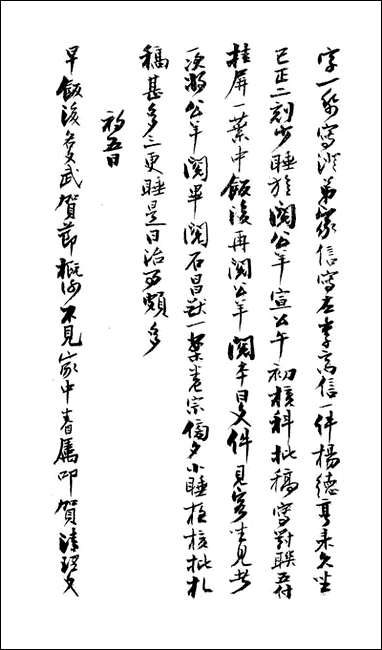 字一紙寫澄弟家信寫左季高信一件楊德亨來久坐
已正二刻少睡旋閱公羊宣公午初核科批稿寫對聯五付
挂屏一葉中飯後再閱公羊閱本日文件見客坐見者
一次將公羊閱畢閱石昌猷一案卷宗傍夕小睡夜核批札
稿甚多三更睡是日治事頗多
初五日
早飯後文武賀節概謝不見家中眷屬叩賀清理文